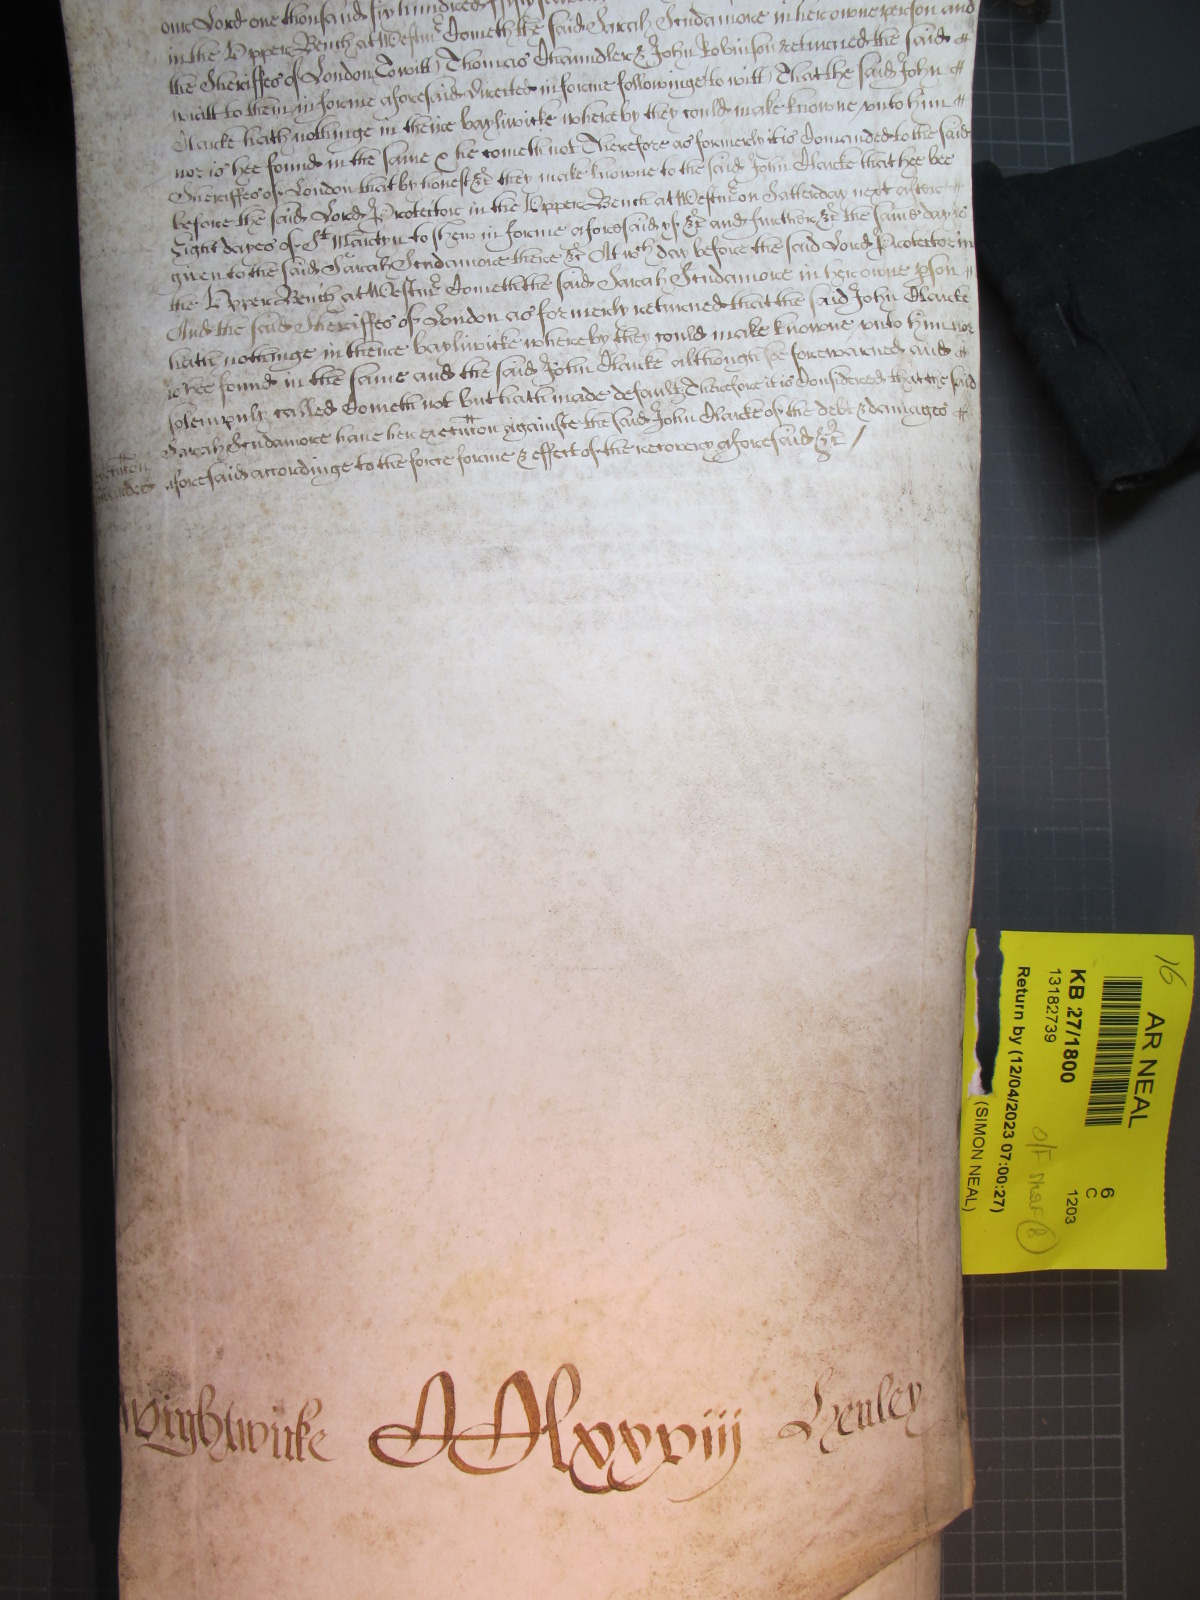 our Lord one thousand six hundred fifty
in the Upper Bench at Westmr Cometh the said Sarah Scudamore in her owne person and
the Sheriffes of London to witt Thomas Chaundler & John Robinson returned the said
writt to them in forme aforesaid directed in forme followinge to witt That the said John
Clarke hath nothinge in theire bayliwicke whereby they could make knowne unto him
nor is hee found in the same & he cometh not Therefore as formerly it is Comanded to the said
Sheriffes of London that by honest &c they make knowne to the said John Clarke that hee bee
before the said Lord Protector in the Upper Bench at Westmr on Satterday next after
Eight dayes of St Martyn to shew in forme aforesaid yf &c and further &c the same day is
given to the said Sarah Scudamore there &c At wch day before the said Lord Protector in
the Upper Bench at Westmr Cometh the said Sarah Scudamore in her owne pson
And the said Sheriffes of London as formerly returned that the said John Clarke
hath nothinge in theire bayliwicke whereby they could make knowne unto him nor
is hee found in the same and the said John Clarke although he forewarned and
solempnly called Cometh not but hath made default Therefore it is Considered that the said
Sarah Scudamore have her execution againste the said John Clarke of the debt & damages
aforesaid accordinge to the force forme & effect of the recovery aforesaid &c /
Wightwicke CClxxxviii Henley
16
AR NEAL
KB 27/1800
13182739
Return by (12/04/2023 07:00:27)
(SIMON NEAL)
6
C
1203
O/F Neal (8)